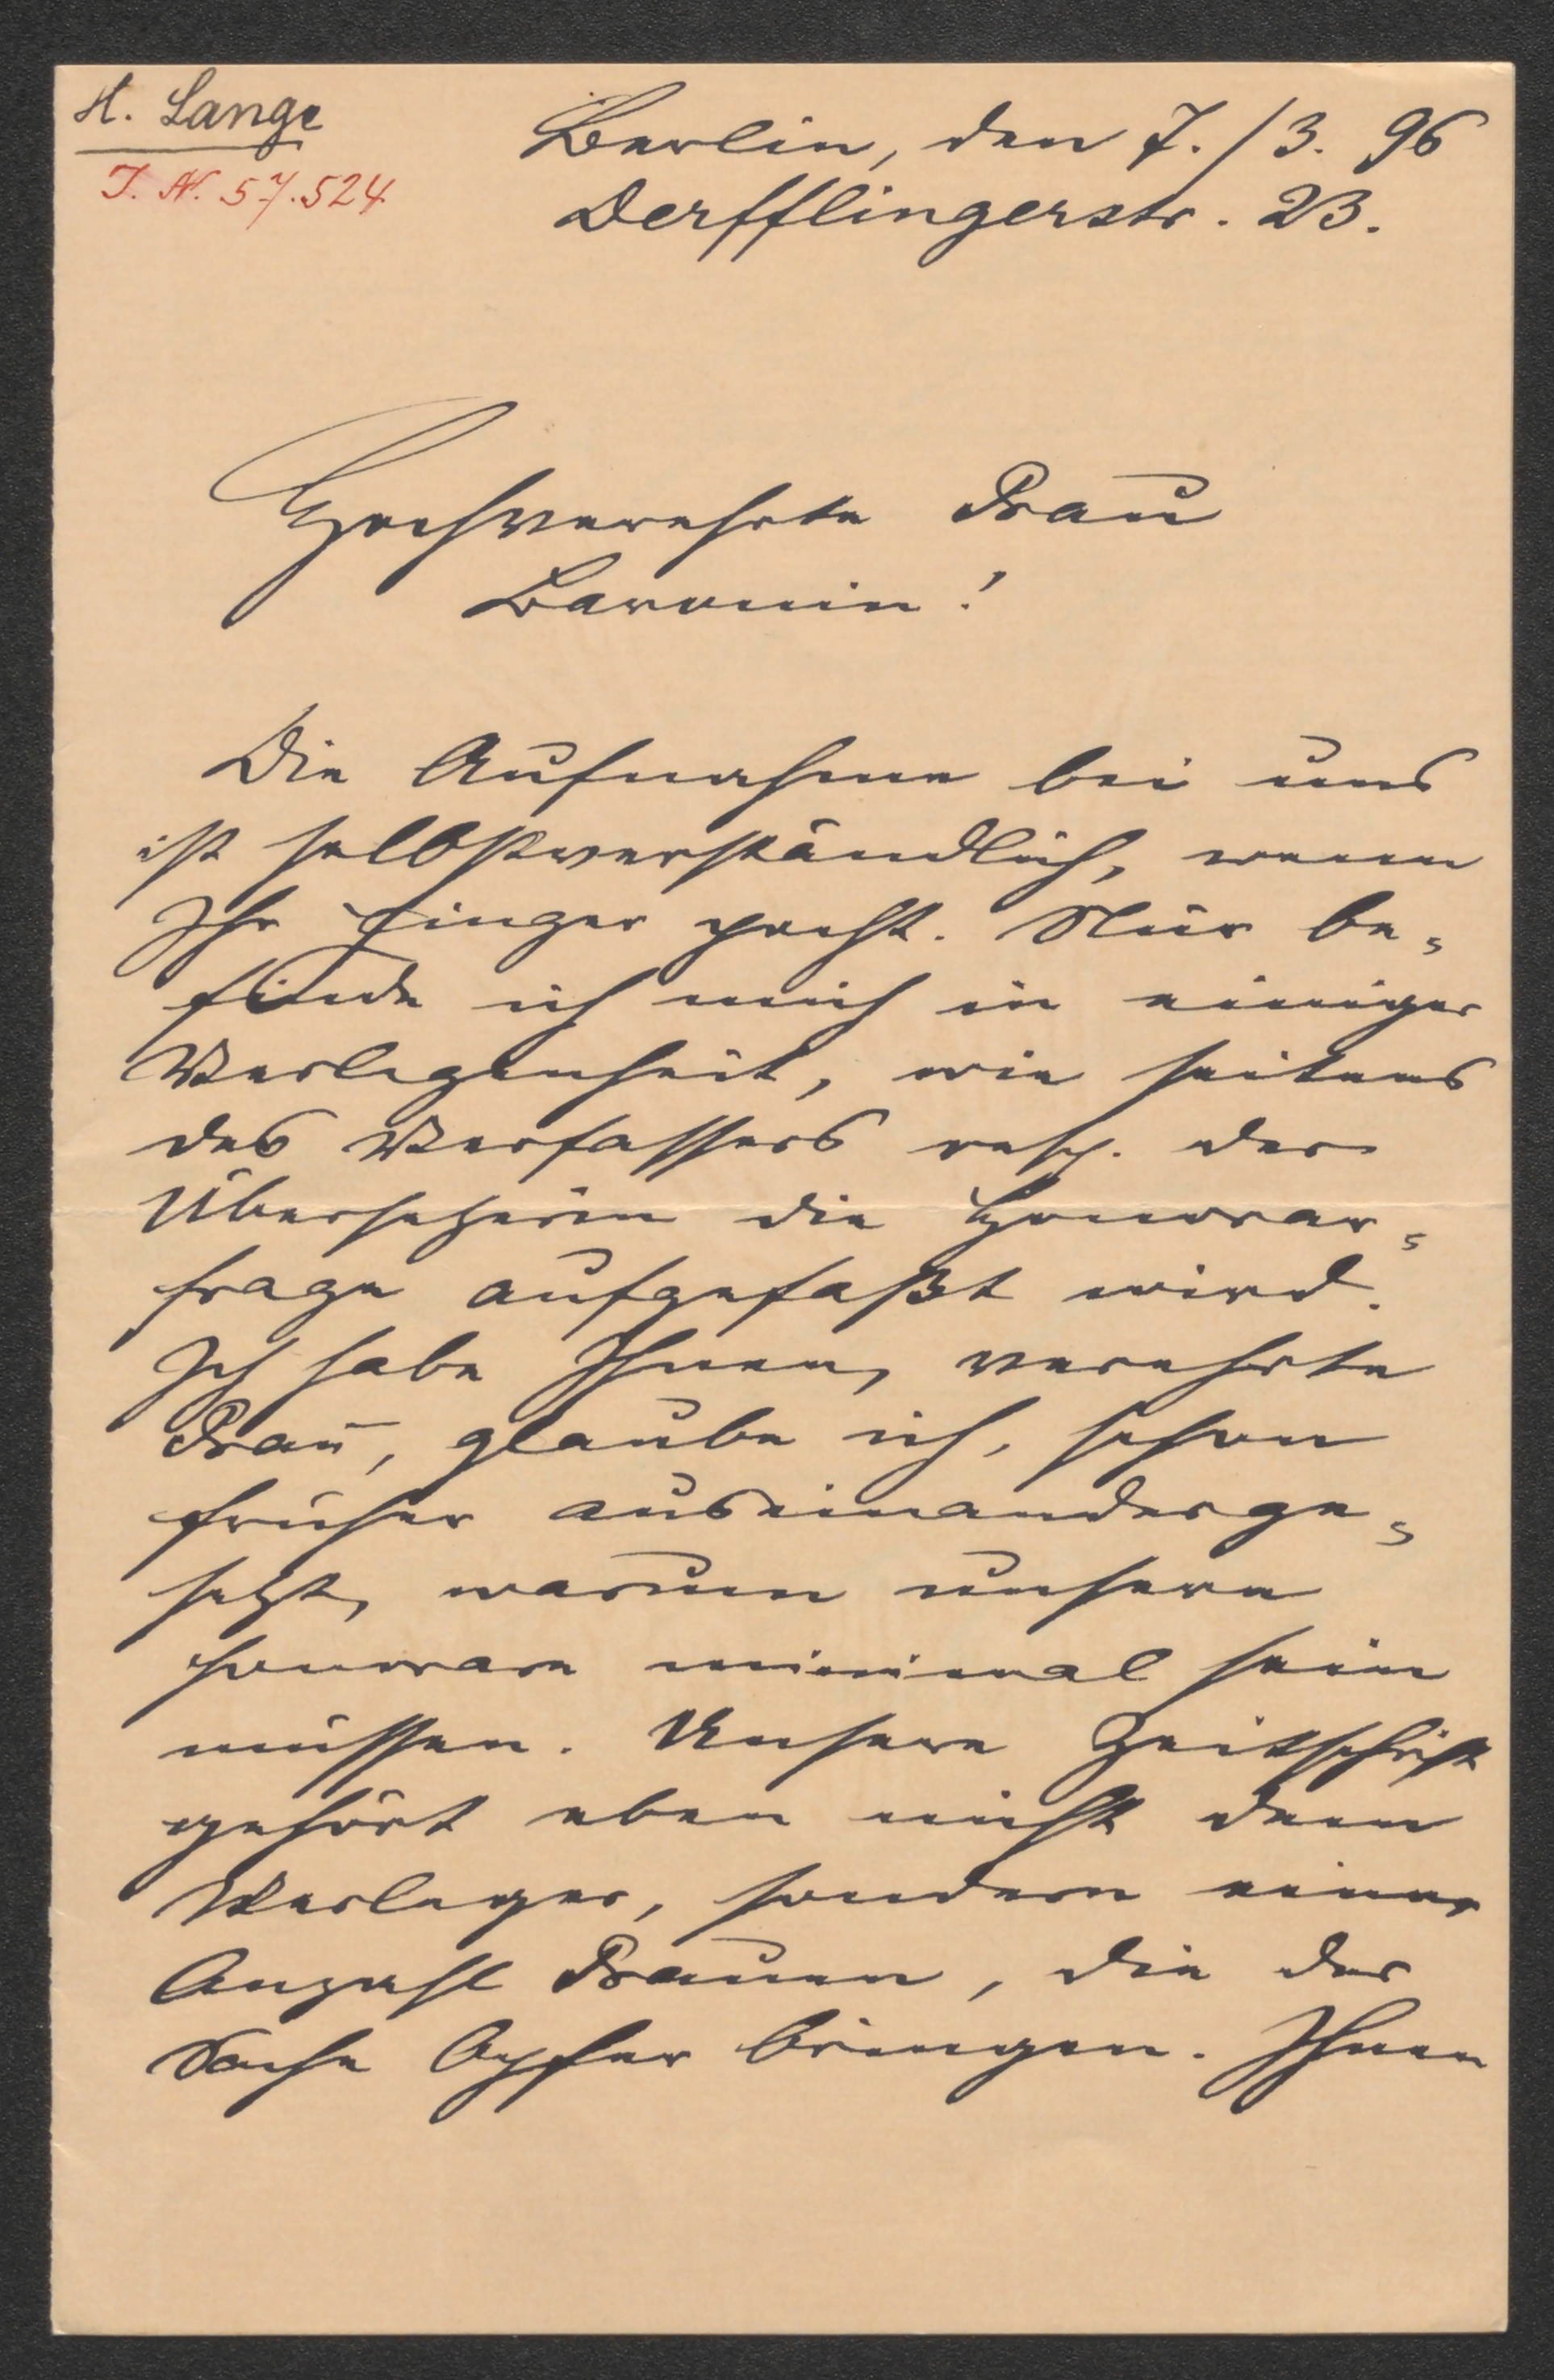 H. Lange
I. N. 57.524
Berlin, den 7./3. 96
Derfflingerstr. 23.
Hochverehrte Frau
Baronin!
Die Aufnahme bei uns
ist selbstverständlich, wenn
Ihr Finger pocht. Nur be-
finde ich mich in einiger
Verlegenheit, wie seitens
des Verfassers resp. der
Übersetzerin die Honorar-
frage aufgefaßt wird.
Ich habe Ihnen, verehrte
Frau, glaube ich, schon
früher auseinanderge-
setzt, warum unsere
Honorare minimal sein
müssen. Unsere Zeitschrift
gehört eben nicht dem
Verleger, sondern einer
Anzahl Frauen, die der
Sache Opfer bringen. Ihnen